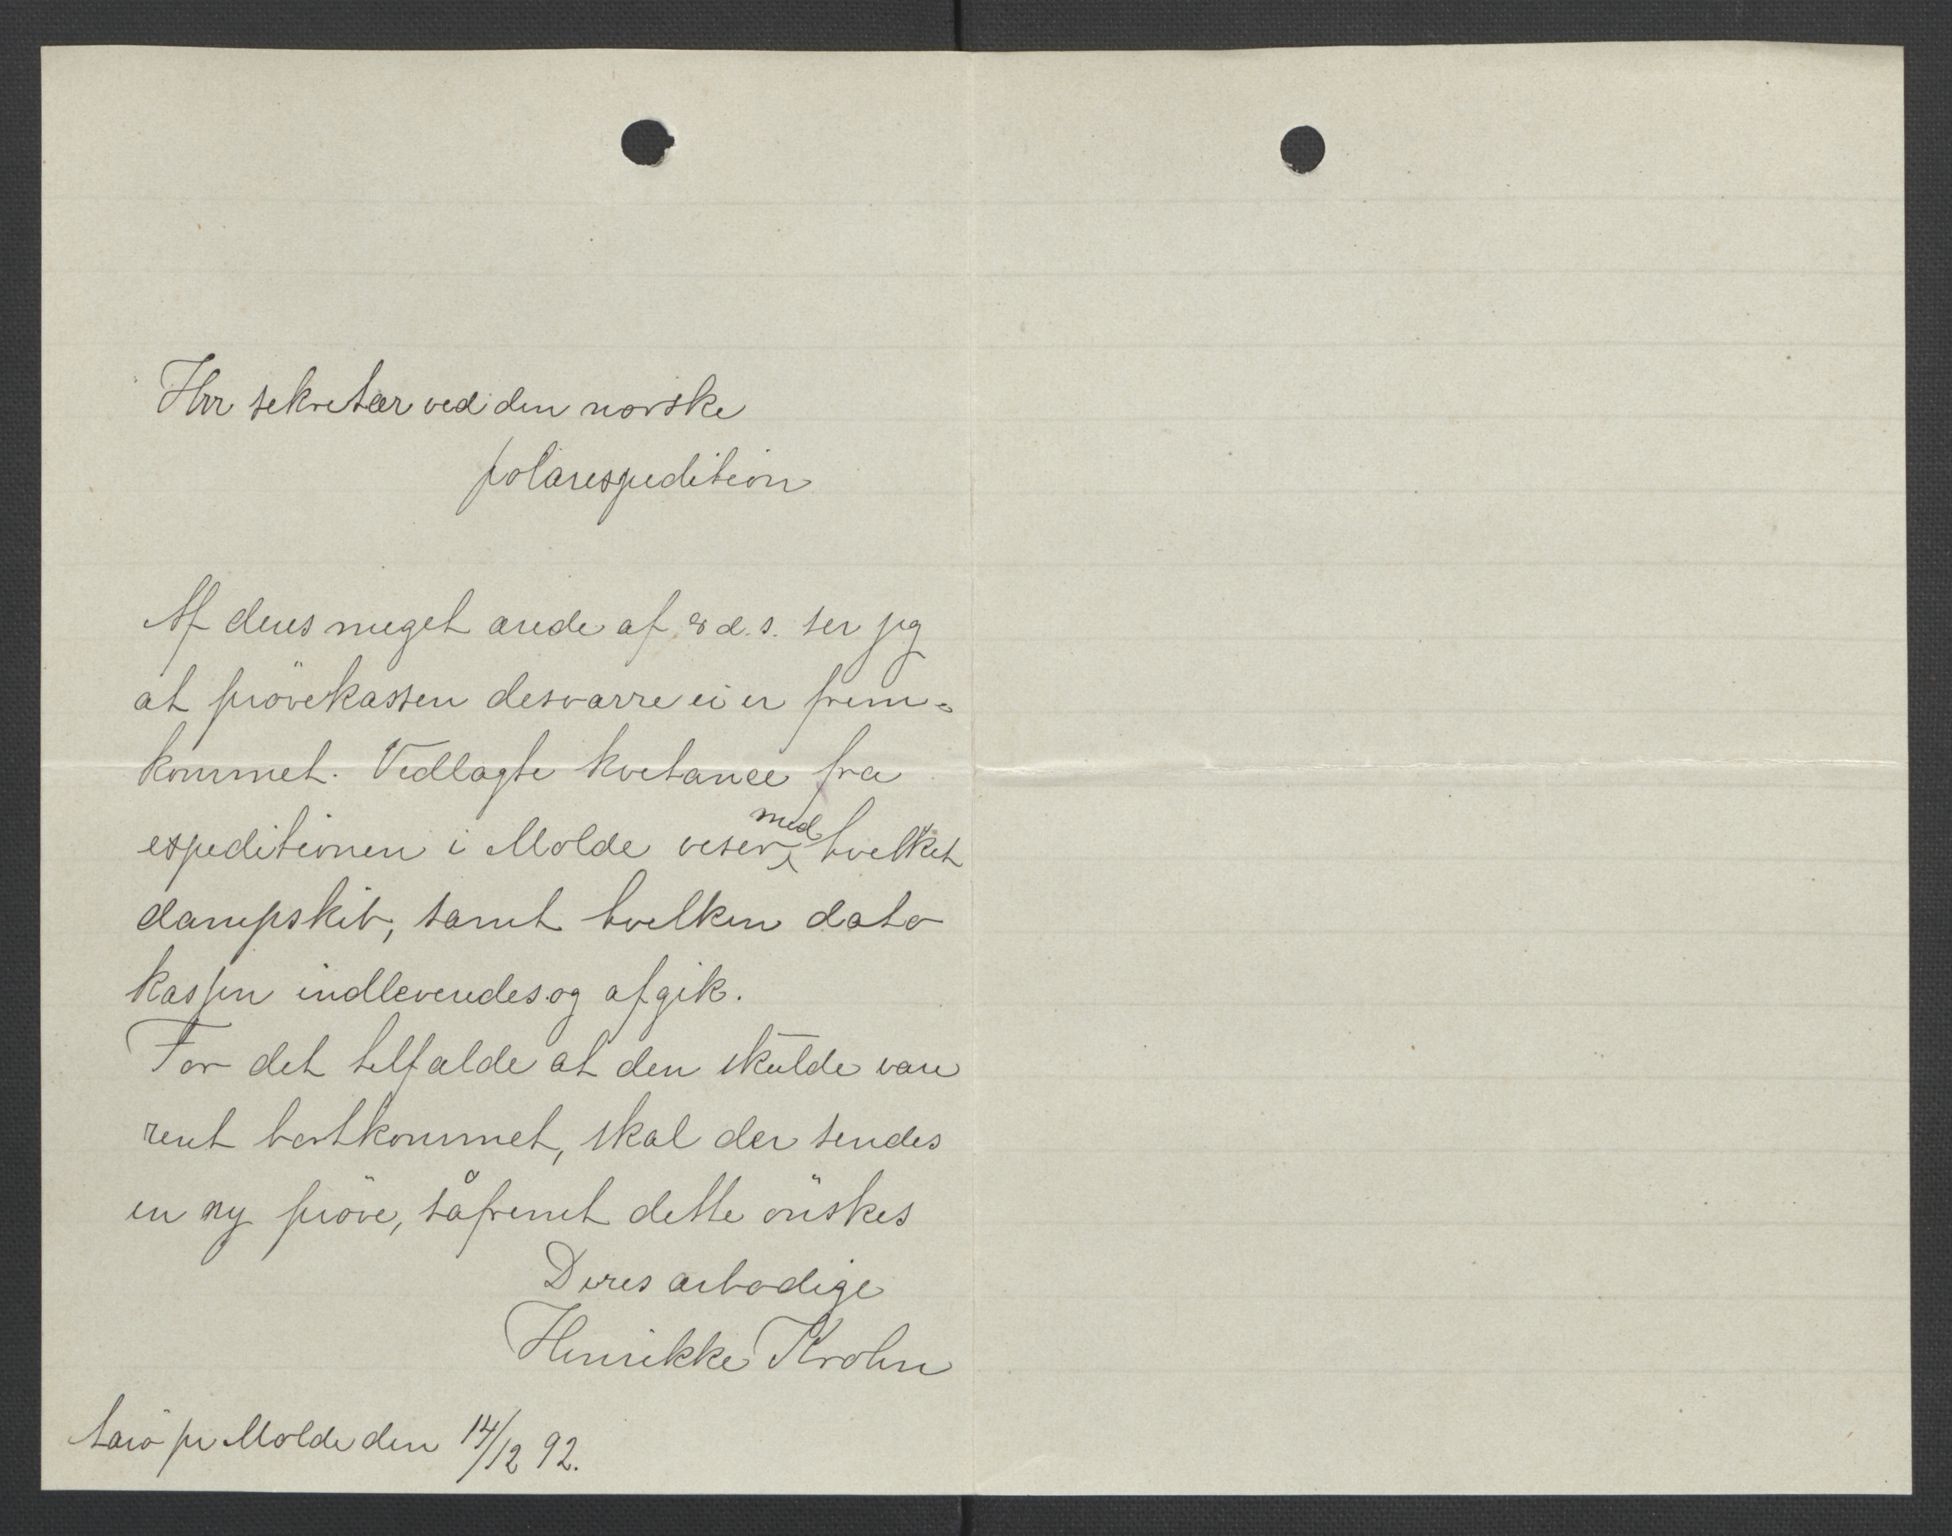 Hrr sekretær ved den norske
polarexpedition
Af deres meget ærede af 8 d. s. ser jeg
at prövekassen desværre ei er frem-
kommet. Vedlagte kvitance fra
expeditionen i Molde viser med hvilket
dampskib, samt hvilken dato
kassen indleveredes og afgik.
For det tilfælde at den skulde være
rent bortkommet, skal der sendes
en ny pröve, såfremt dette önskes
Deres ærbødige
Henrikke Krohn
pr Molde den 14/12 92.